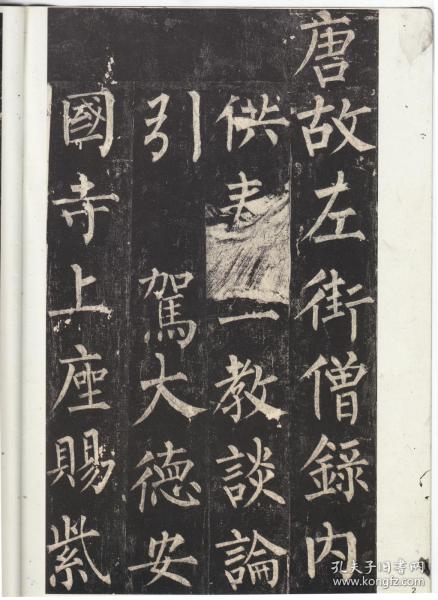 唐故左街僧錄內
供奉三教談論
引駕大德安
國寺上座賜紫
2
孔夫子旧书网
www.kongfz.com